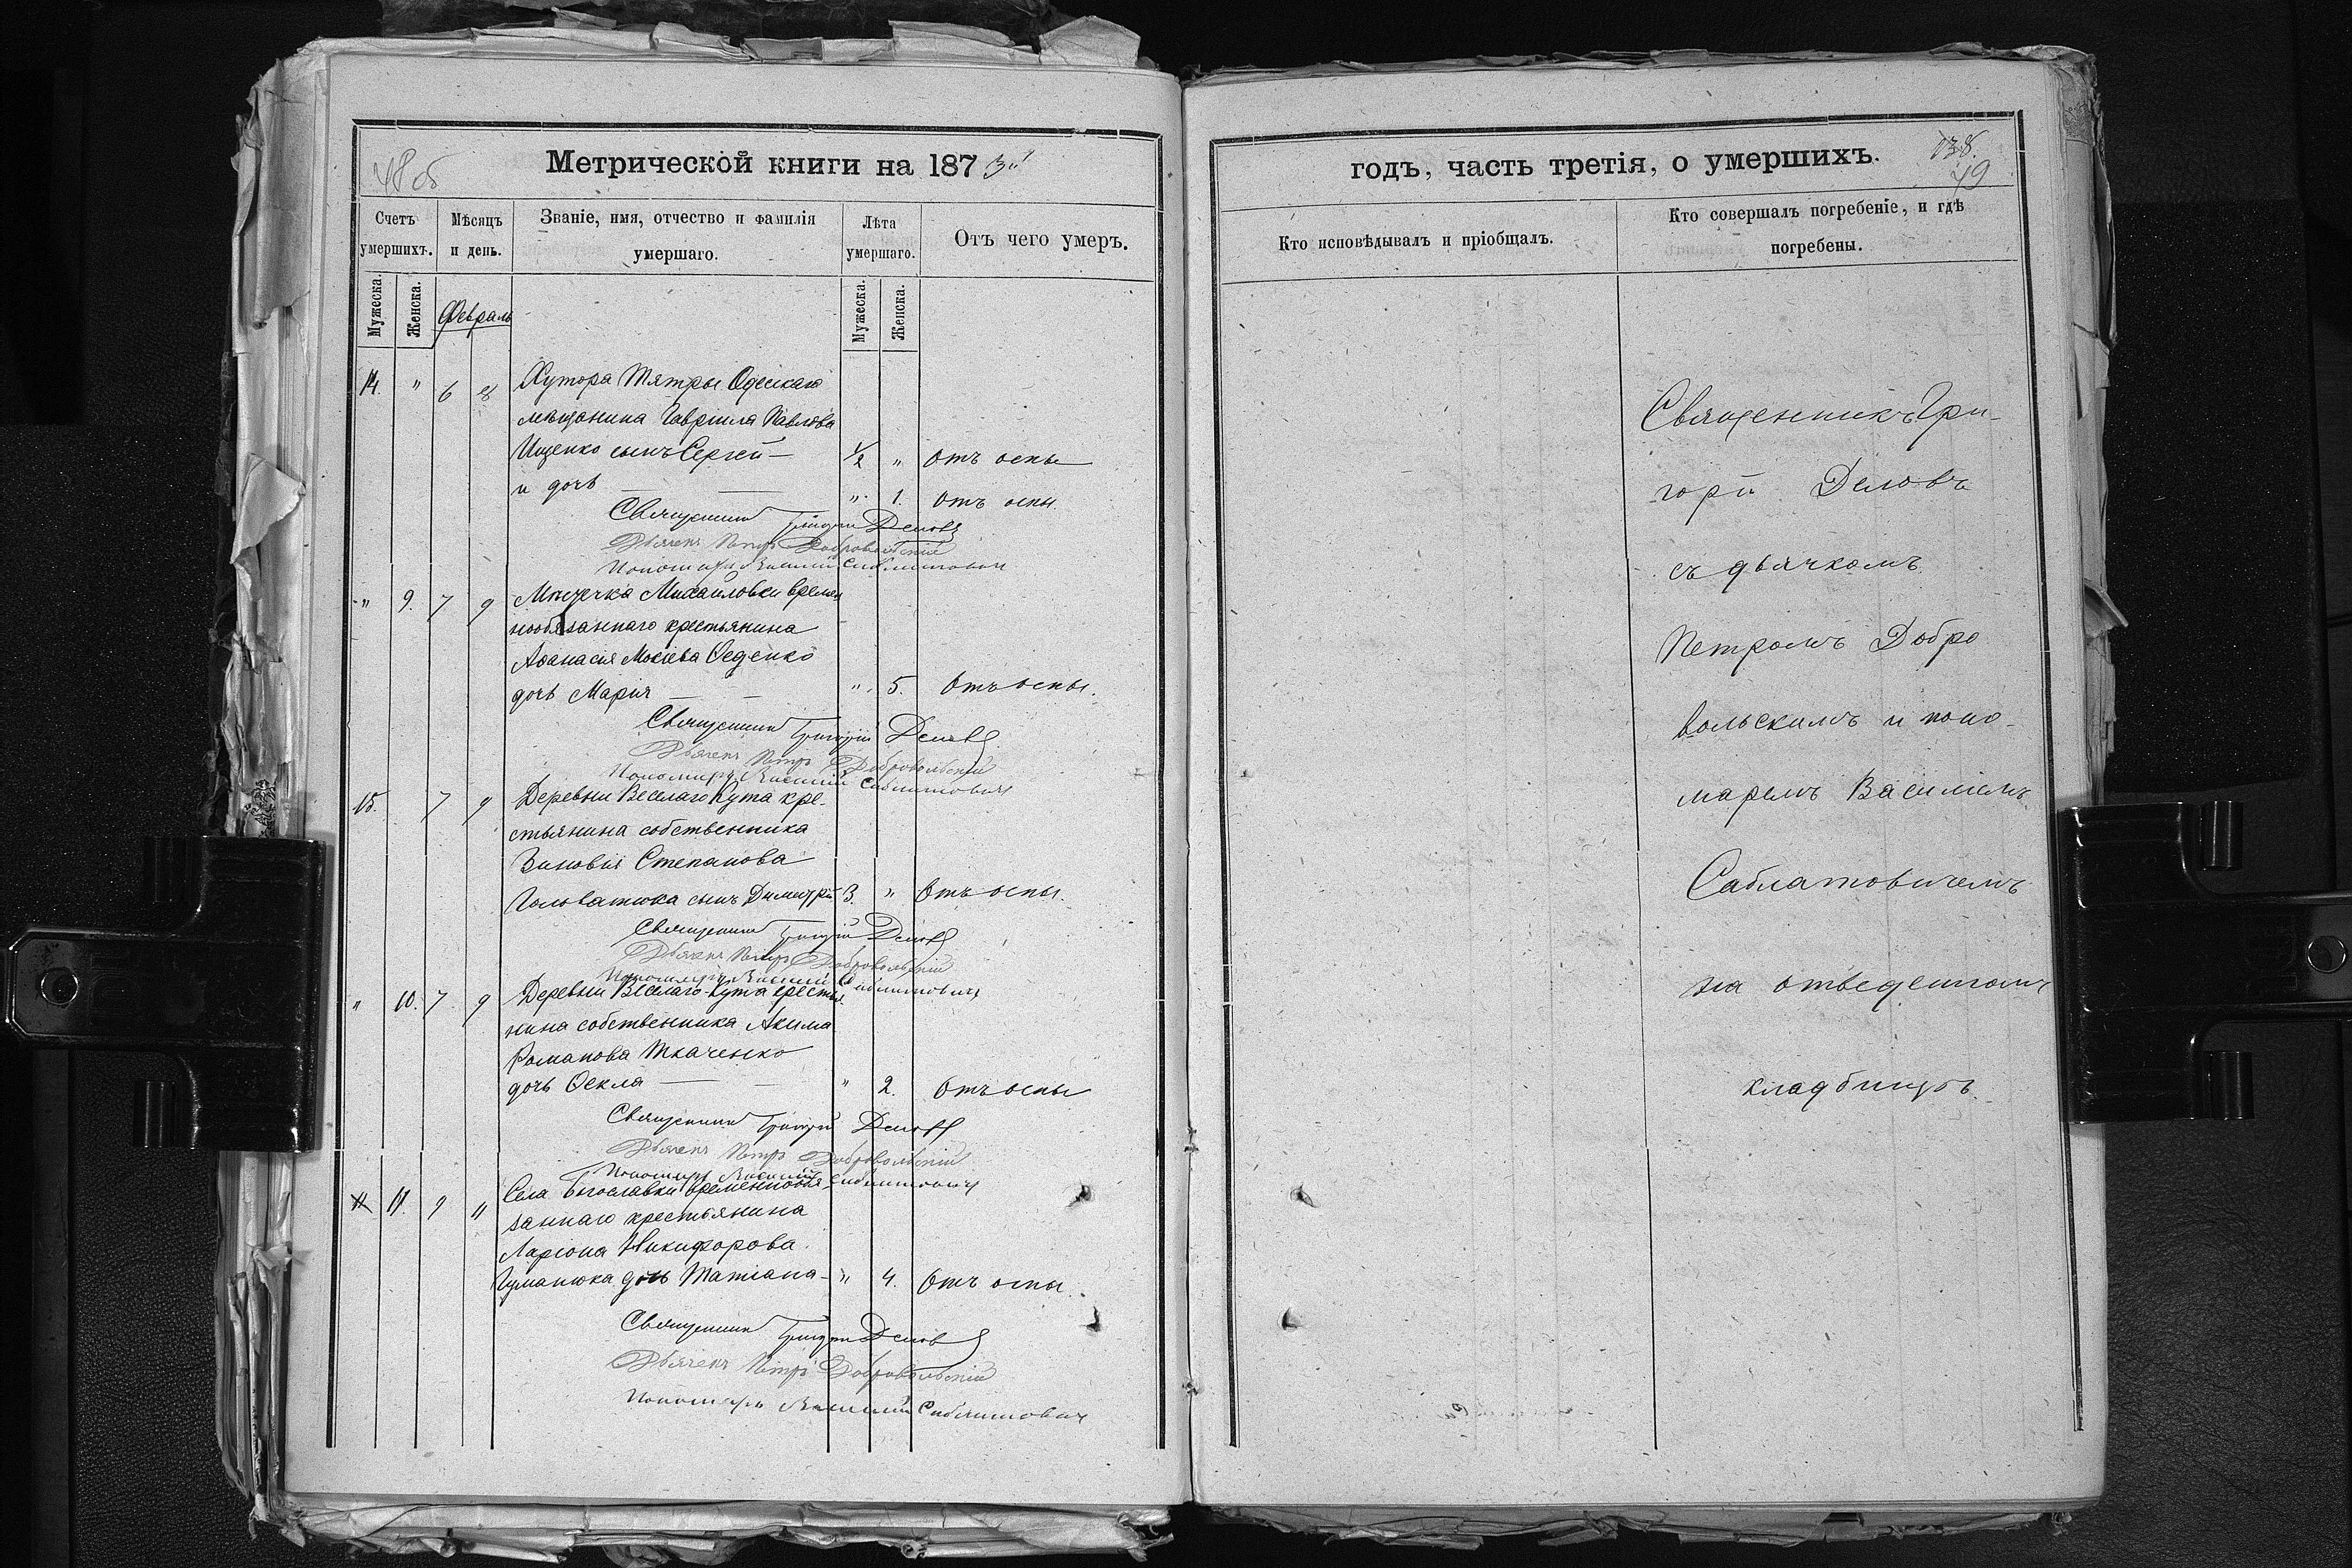 48 об
Метрической книги на 1873й
Счетъ умершихъ.
Мѣсяцъ и день.
Званіе, имя, отчество и фамилія умершаго.
Лѣта умершаго.
Отъ чего умеръ.
Мужеска.
Женска.
Февраль
Мужеска.
Женска.
14. " 6 8 Хутора Тятры Одескаго
мѣщанина Гавріила Павлова
Ищенко сынъ Сергѣй — 1/2 " Отъ оспы
и дочь ". 1. Отъ оспы.
Священникъ Григорій Деловъ
Дьячекъ Петръ Добровольскій
Пономарь Василій Саблатовичъ
" 9. 7 9 Мѣстечка Михайловки времен
нообязаннаго крестьянина
Аѳанасія Моѵсіева Ѳеденко
дочь Марія ". 5. Отъ оспы.
Священникъ Григорій Деловъ
Дьячекъ Петръ Добровольскій
Пономарь Василій Саблатовичъ
15. 7 9 Деревни Веселаго Кута кре-
стьянина собственника
Зиновія Степанова
Головатюка сынъ Димитрій 3. " Отъ оспы.
Священникъ Григорій Деловъ
Дьячекъ Петръ Добровольскій
Пономарь Василій Саблатовичъ
" 10. 7 9 Деревни Веселаго Кута крестья
нина собственника Акима
Романова Ткаченко
дочь Ѳекла " 2. Отъ оспы
Священникъ Григорій Деловъ
Дьячекъ Петръ Добровольскій
Пономарь Василій Саблатовичъ
11. 9 11 Села временнообя
заннаго крестьянина
Ларіона Никифорова
Гуманюка дочь Татіана - " 4. Отъ оспы.
Священникъ Григорій Деловъ
Дьячекъ Петръ Добровольскій
Пономарь Василій Саблатовичъ
годъ, часть третія, о умершихъ.
138.
49
Кто исповѣдывалъ и пріобщалъ.
Кто совершалъ погребеніе, и гдѣ погребены.
Священникъ Гри-
горій Деловъ
съ дьячкомъ
Петромъ Добро
вольскимъ и поно-
маремъ Василіемъ
Саблатовичемъ
на отведенномъ
кладбищѣ.